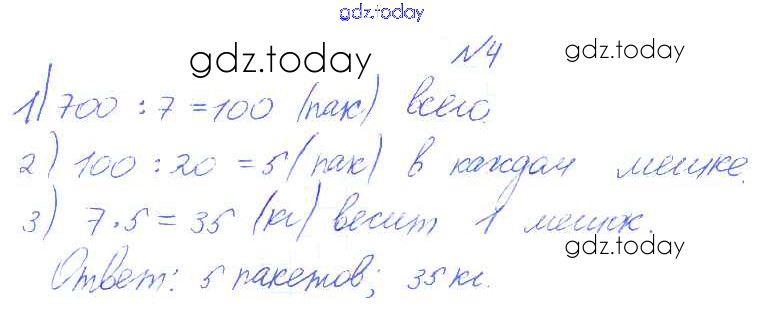 gdz.today
№4
gdz.today gdz.today
1) 700 : 7 = 100 (пак) всего.
2) 100 : 20 = 5 (пак) в каждом мешке.
3) 7 · 5 = 35 (кг) весит 1 мешок.
gdz.today
Ответ: 5 пакетов; 35 кг.